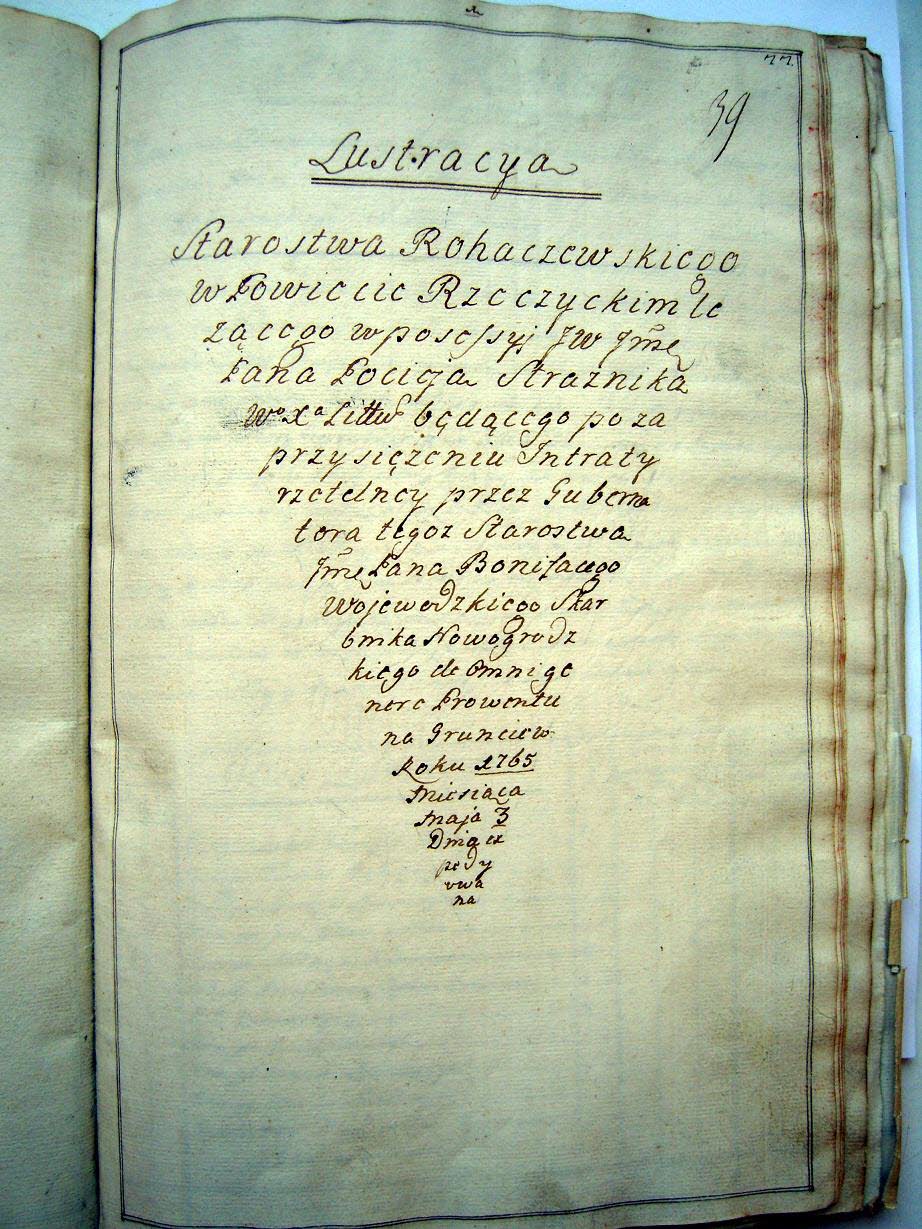 77.
39
Lustracya
Starostwa Rohaczewskiego
w Powiecie Rzeczyckim le
żącego w posessyj JW Jmę
Pana Pocieja Strażnika
Wo Xa Littw będącego po za
przysiężeniu Intraty
rzetelney przez Guberna
tora tegoz Starostwa
Jmę Pana Bonifacego
Wojewodzkiego Skar
bnika Nowogrodz
kiego de omni ge
nere Prowentu
na Gruncie w
Roku 1765
Miesiąca
Maja 3
Dnia ex
pedy
owa
na